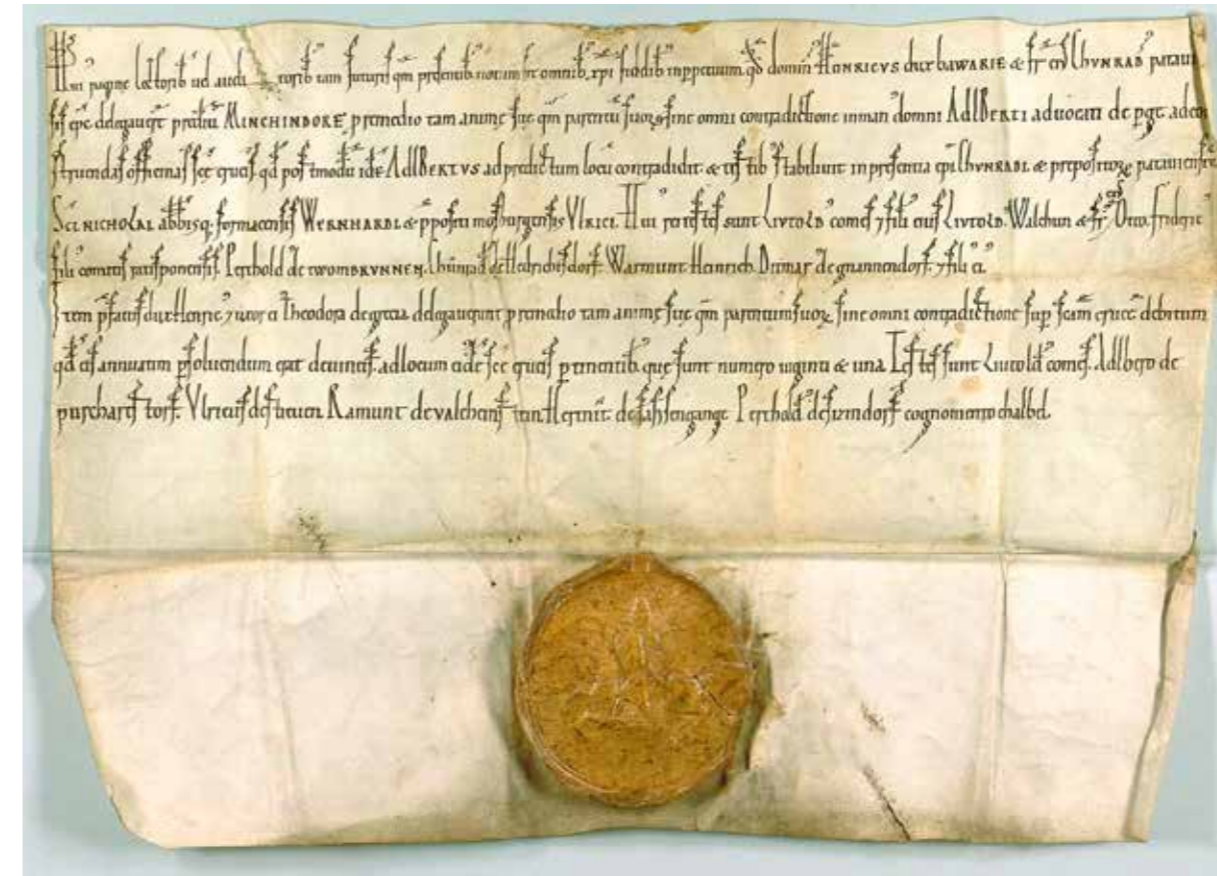 Hui pagine lectorib' ud audi torib' tam futuris qm presentib' notum sit omnib' xpi fidelib' inppetuum qd domin' HENRICVS dux bAWARIE & fr ei' ChVNRAD' patavi
sis epc delegauert prediu MINCHINDORF premedio tam anime sue qm parentu suoꝝ sine omni contradictione inman' domni AdlBERTI aduocati de pge adcon
struendas officinas sce crucis qd postmodu idē AdlBERTVS ad predictum locu contradidit & testib' stabiliuit in presentia epi ChVNRADI & prepositoꝝ patauiensis
SCI NICHOLAI abbisq formacensis WERNHARDI & ppositi mosburgensis VlRICI. Hui' rei testes sunt LIVTOLD' comes ⁊ fili' eius LIVTOLD'. Walchun & fr ei' Otto. frideric'
fili' comitis ratisponensis. Perhtold' de twomBRVNNEN. Chunrad' de Hedrichisdorf. Warmunt. Heinrich. Ditmar de gnannendorf. ⁊ fili' ei'
Item pfatus dux Henric' ⁊ uxor ei' Theodora de grecia delegauerunt premedio tam anime sue qm parentum suoꝝ sine omni contradictione sup scam cruce debitum
qd eis annuatim psoluendum erat deuineis. adlocum eidē sce crucis ptinentib' que sunt numero uiginti & una. Test' sunt Liutold' comes. Adlbero de
purchartstorf. Vlricus de stieuen. Ramunt de valchenstein. Hertnit de Sahsengange Perhtold' de sizindorf cognomento chalbel.